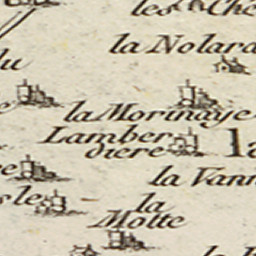 les Che
la Nolard
du
la Morinaye
Lamber
diere
la
la Vann
sles
la
Motte